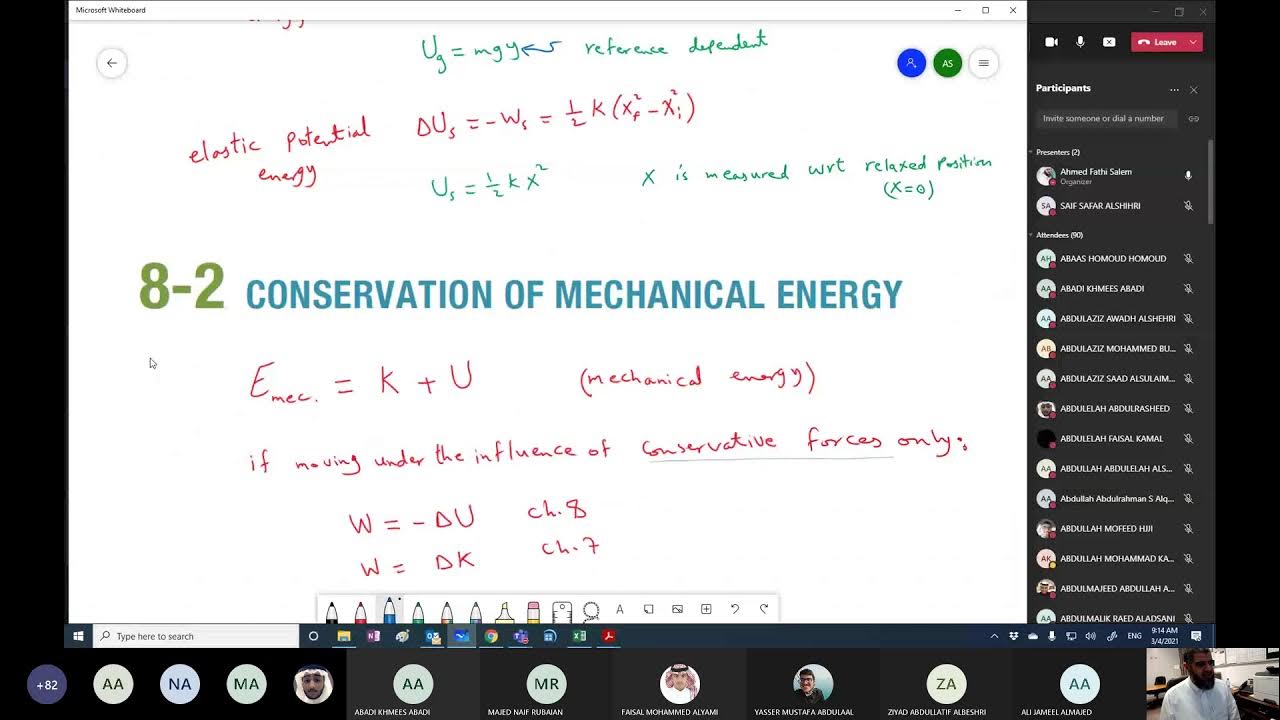 Microsoft Whiteboard
U_g = mgy ← reference dependent
AS
elastic potential energy
ΔU_s = -W_s = 1/2 K (x_f² - x_i²)
U_s = 1/2 K x²
x is measured wrt relaxed position (x=0)
8-2 CONSERVATION OF MECHANICAL ENERGY
E_mec. = K + U (mechanical energy)
if moving under the influence of conservative forces only:
W = - ΔU ch. 8
W = ΔK ch. 7
Type here to search
ENG
9:14 AM
3/4/2021
Leave
Participants
Invite someone or dial a number
Presenters (2)
Ahmed Fathi Salem
Organizer
SA SAIF SAFAR ALSHIHRI
Attendees (90)
AH ABAAS HOMOUD HOMOUD
AA ABADI KHMEES ABADI
AA ABDULAZIZ AWADH ALSHEHRI
AB ABDULAZIZ MOHAMMED BU...
AA ABDULAZIZ SAAD ALSULAIM...
ABDULELAH ABDULRASHEED
ABDULELAH FAISAL KAMAL
AA ABDULLAH ABDULELAH ALS...
AA Abdullah Abdulrahman S Alq...
ABDULLAH MOFEED HJJI
AK ABDULLAH MOHAMMAD KA...
ABDULMAJEED ABDULLAH A...
AA ABDULMALIK RAED ALADSANI
+82
AA
NA
MA
AA
ABADI KHMEES ABADI
MR
MAJED NAIF RUBAIAN
FAISAL MOHAMMED ALYAMI
YASSER MUSTAFA ABDULAAL
ZA
ZIYAD ABDULLATIF ALBESHRI
AA
ALI JAMEEL ALMAJED